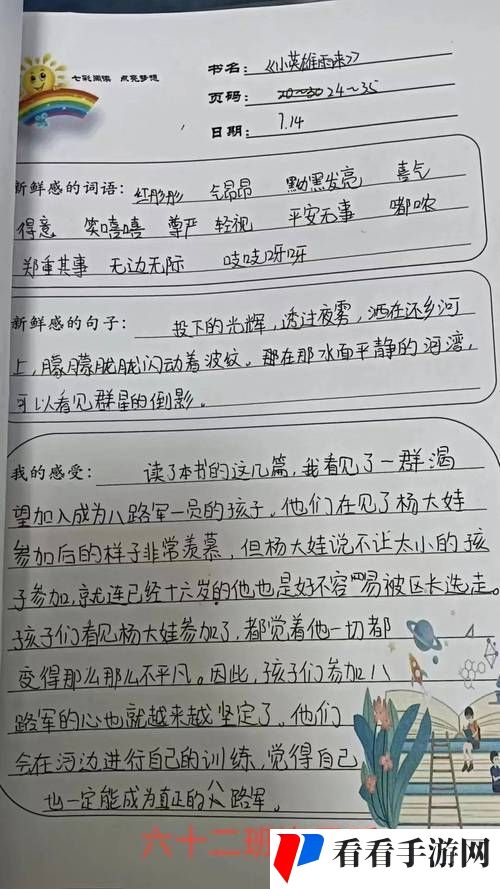 七彩阅读 点亮梦想
书名：《小英雄雨来》
页码：24~35
日期：7.14
新鲜感的词语：红彤彤 气昂昂 黝黑发亮 喜气
得意 笑嘻嘻 尊严 轻视 平安无事 嘟哝
郑重其事 无边无际 吱吱呀呀
新鲜感的句子：投下的光辉，透过夜雾，洒在还乡河
上，朦朦胧胧闪动着波纹。那在那水面平静的河湾，
可以看见群星的倒影。
我的感受：读了本书的这几篇，我看见了一群渴
望加入成为八路军一员的孩子。他们在见了杨大娃
参加后的样子非常羡慕，但杨大娃说不让太小的孩
子参加，就连已经十六岁的他也是好不容易被区长选走。
孩子们看见杨大娃参加了，都觉着他一切都
变得那么那么不平凡。因此，孩子们参加八
路军的心也就越来越坚定了。他们
会在河边进行自己的训练，觉得自己
也一定能成为真正的八路军。
六十二班
看看手游网